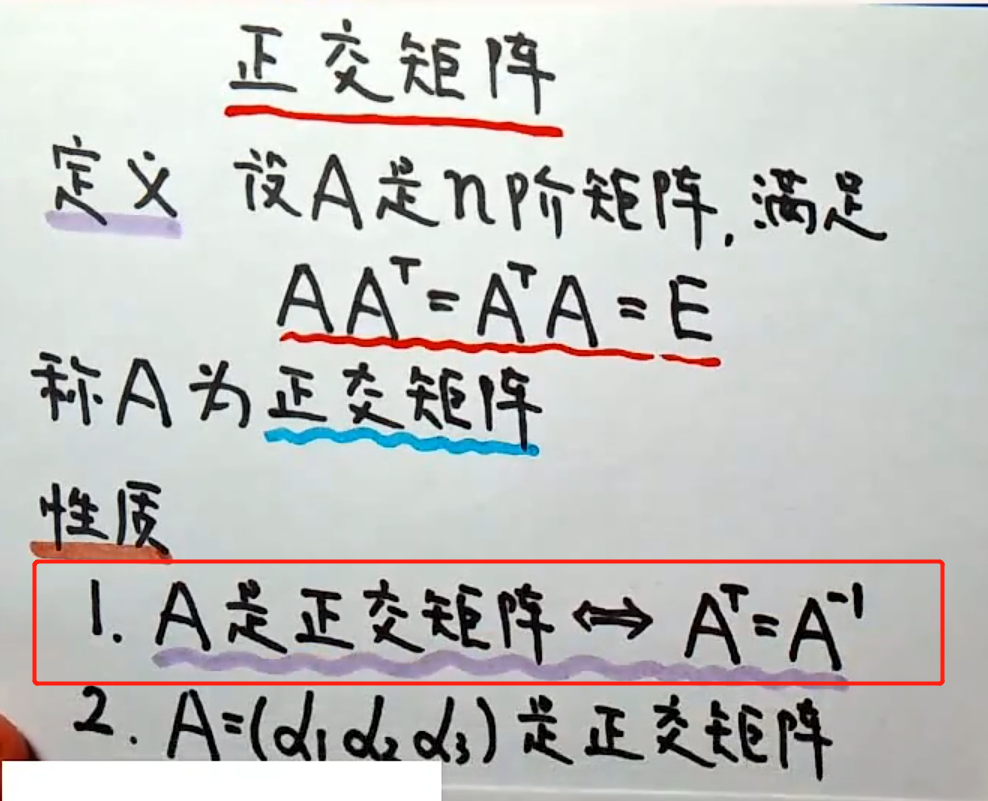 正交矩阵
定义 设A是n阶矩阵,满足
AAᵀ=AᵀA=E
称A为正交矩阵
性质
1. A是正交矩阵⇔Aᵀ=A⁻¹
2. A=(α₁α₂α₃)是正交矩阵